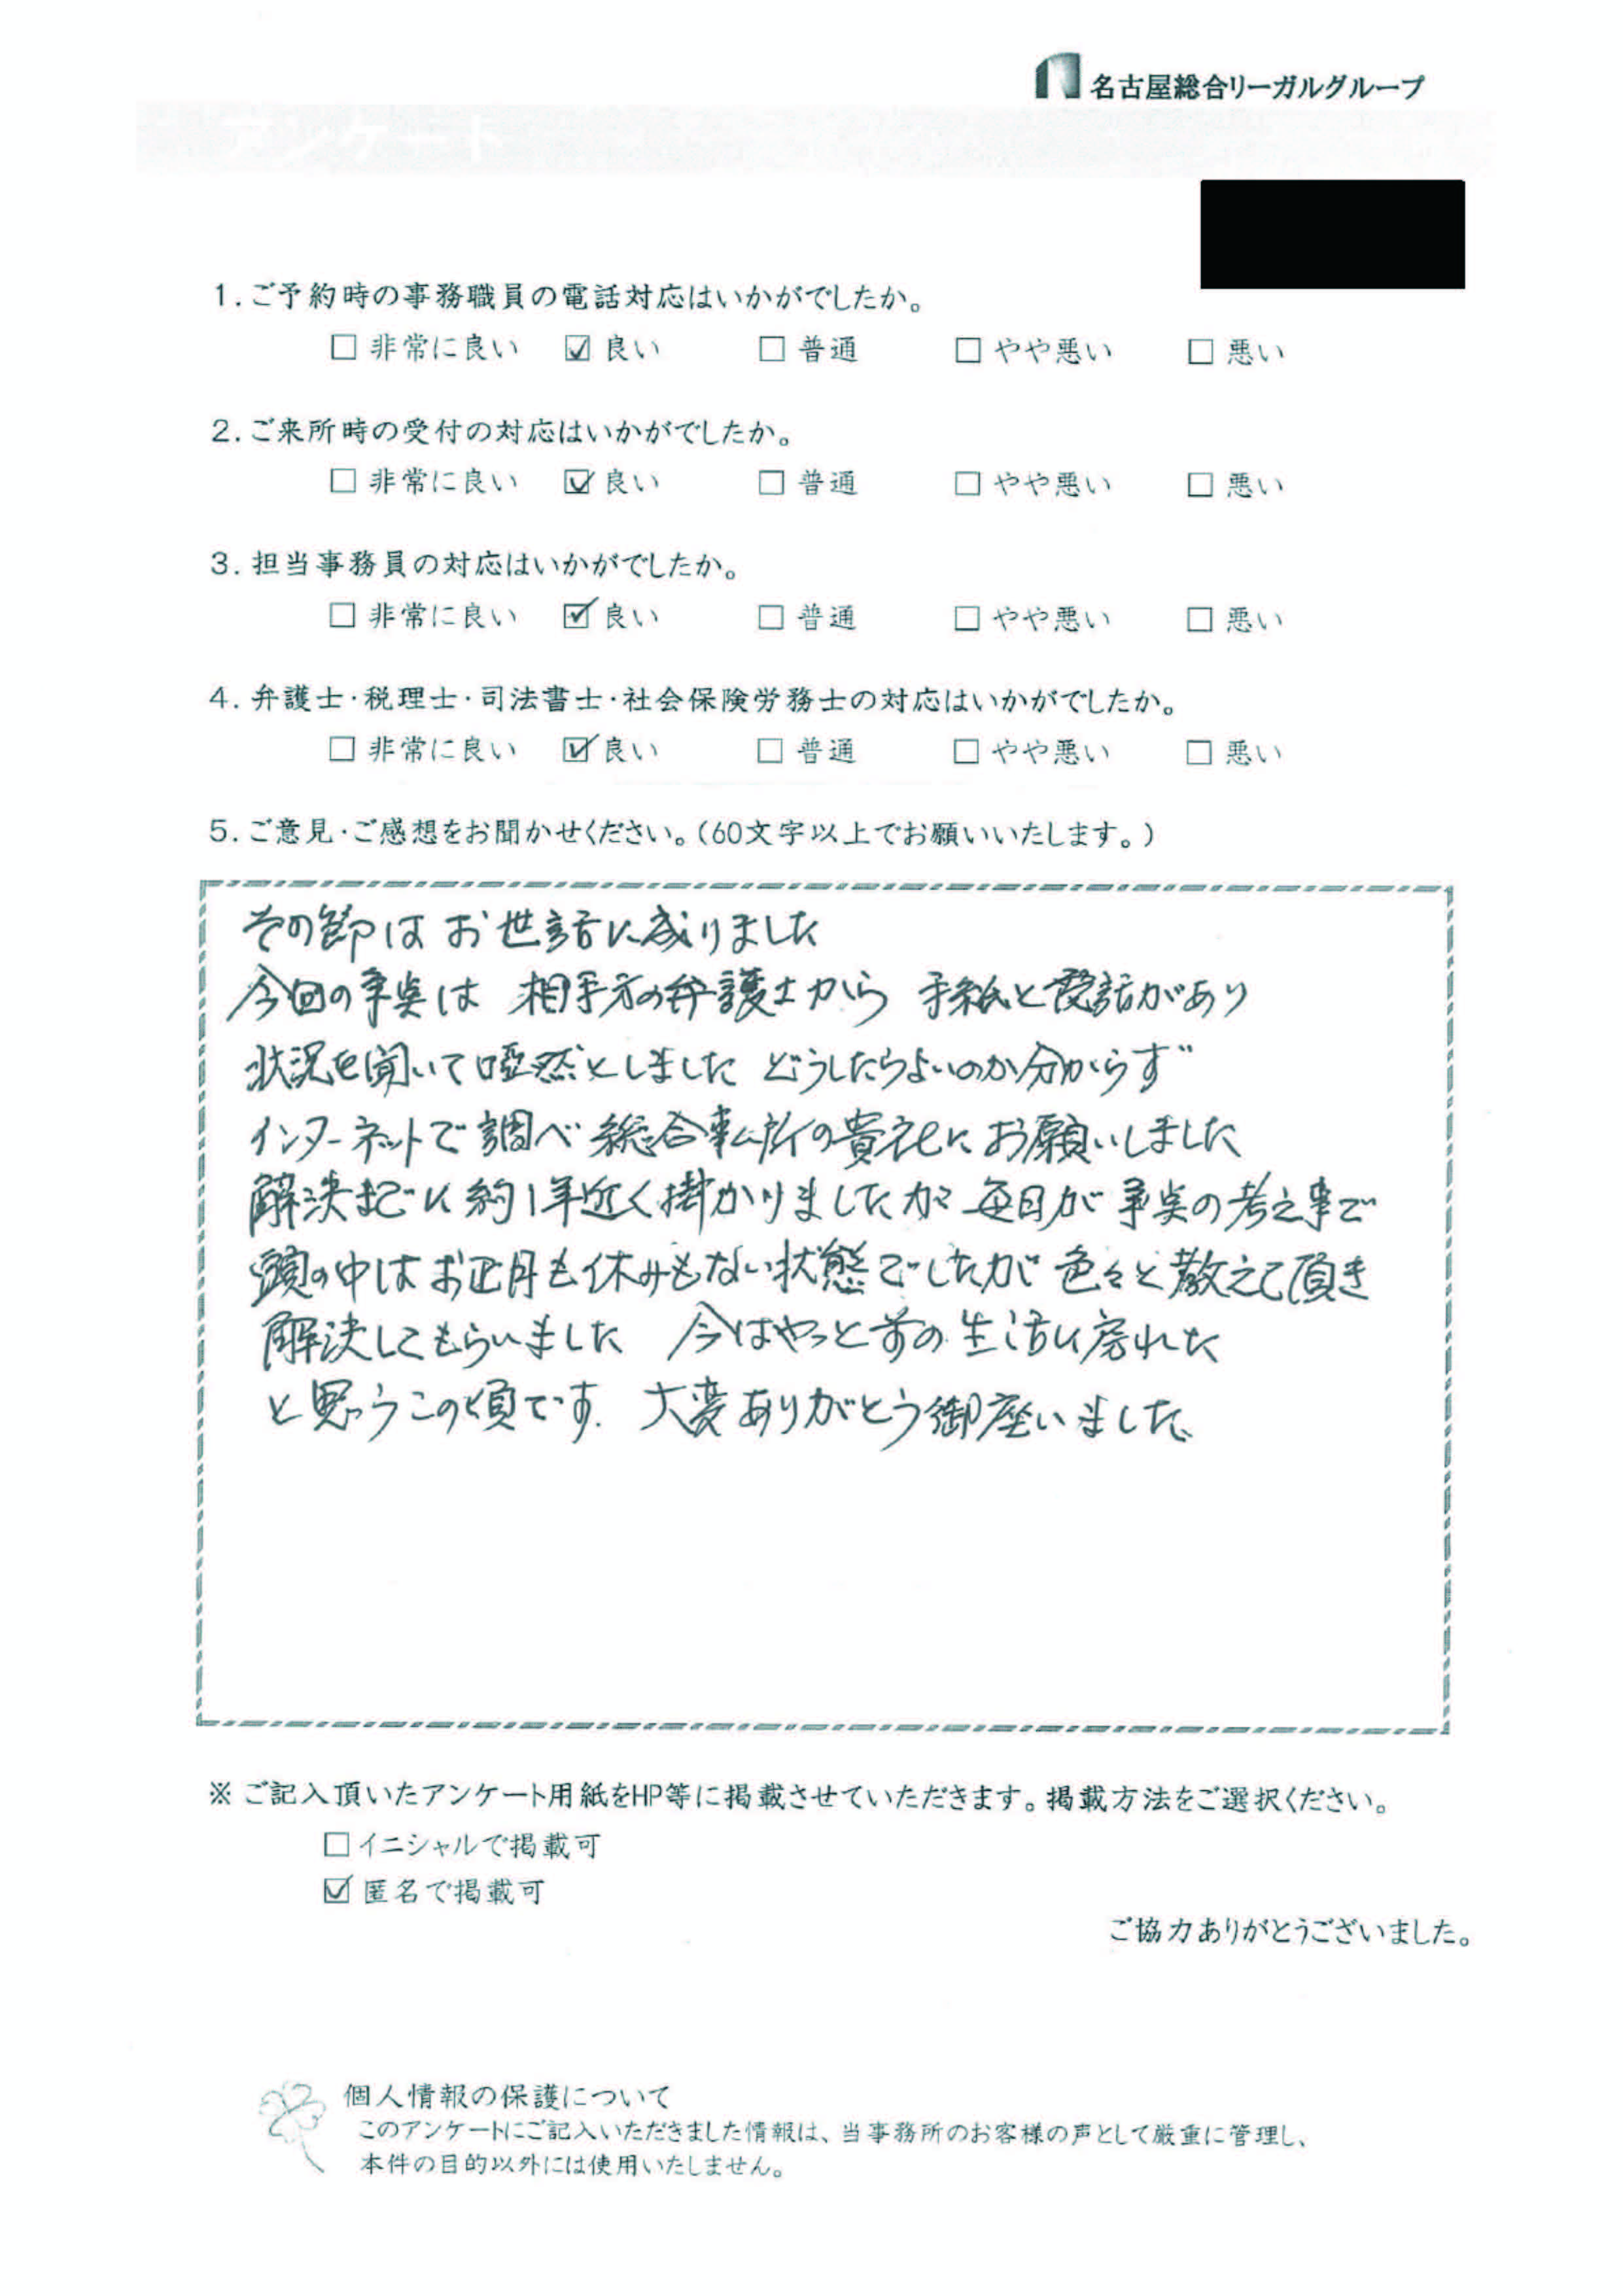 名古屋総合リーガルグループ
アンケート
1.ご予約時の事務職員の電話対応はいかがでしたか。
□ 非常に良い ☑ 良い □ 普通 □ やや悪い □ 悪い
2.ご来所時の受付の対応はいかがでしたか。
□ 非常に良い ☑ 良い □ 普通 □ やや悪い □ 悪い
3.担当事務員の対応はいかがでしたか。
□ 非常に良い ☑ 良い □ 普通 □ やや悪い □ 悪い
4.弁護士・税理士・司法書士・社会保険労務士の対応はいかがでしたか。
□ 非常に良い ☑ 良い □ 普通 □ やや悪い □ 悪い
5.ご意見・ご感想をお聞かせください。(60文字以上でお願いいたします。)
その節は お世話に成りました
今回の事は 相手方の弁護士から 手紙と電話があり
状況を聞いて唖然としました どうしたらよいのか分からず
インターネットで調べ 総合事ム所の貴社に お願いしました
解決までに約1年近く掛かりましたが 毎日が の考え事で
頭の中はお正月も休みもない状態でしたが 色々と教えて頂き
解決してもらいました 今はやっと前の生活に戻れた
と思うこの頃です. 大変ありがとう御座いました
※ご記入頂いたアンケート用紙をHP等に掲載させていただきます。掲載方法をご選択ください。
□イニシャルで掲載可
☑ 匿名で掲載可
ご協力ありがとうございました。
個人情報の保護について
このアンケートにご記入いただきました情報は、当事務所のお客様の声として厳重に管理し、
本件の目的以外には使用いたしません。